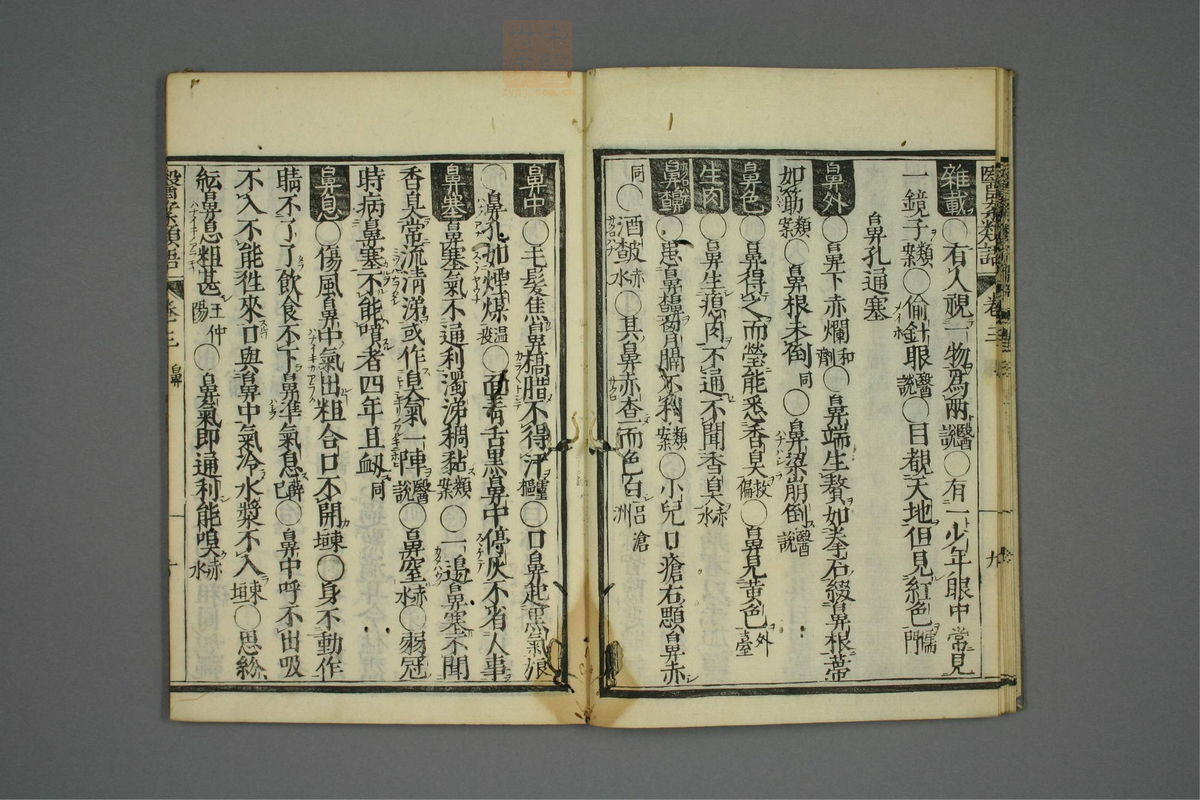 雜載○有人視一物為兩醫說○有一少年眼中常見
一鏡子類案○偷針眼醫說○目覩天地但見紅色儒門
鼻孔通塞
鼻外○鼻下赤爛和劑○鼻端生贅如拳石綴鼻根蔕
如筋類案○鼻根未倒同○鼻梁崩倒醫說
鼻色○鼻得之而瑩能悉香臭○鼻見黃色外臺
生肉○鼻生瘜肉不通不聞香臭赤水
鼻齇○患鼻齇胷膈不利類案○小兒口瘡右顋鼻赤
同○酒皶赤水○其鼻赤查而色白滄洲
醫案類語 卷三 九
鼻中○毛髮焦鼻槁腊不得汗靈樞○口鼻起黑氣
○鼻孔如煙煤溫疫○面青舌黑鼻中停灰不省人事
鼻塞鼻塞氣不通利濁涕稠黏類案○一邊鼻塞不聞
香臭常流淸涕或作臭氣一陣醫說○鼻窒赤水○弱冠
時病鼻塞不能噴者四年且衂同
鼻息○傷風鼻中氣出粗合口不開垣東○身不動作
睛不了了飲食不下鼻準氣息○鼻中呼不出吸
不入不能徃來口與鼻中氣冷水漿不入東垣○思
紜鼻息粗甚王仲陽○鼻氣即通利能嗅赤水
醫案類語 卷三 鼻 十